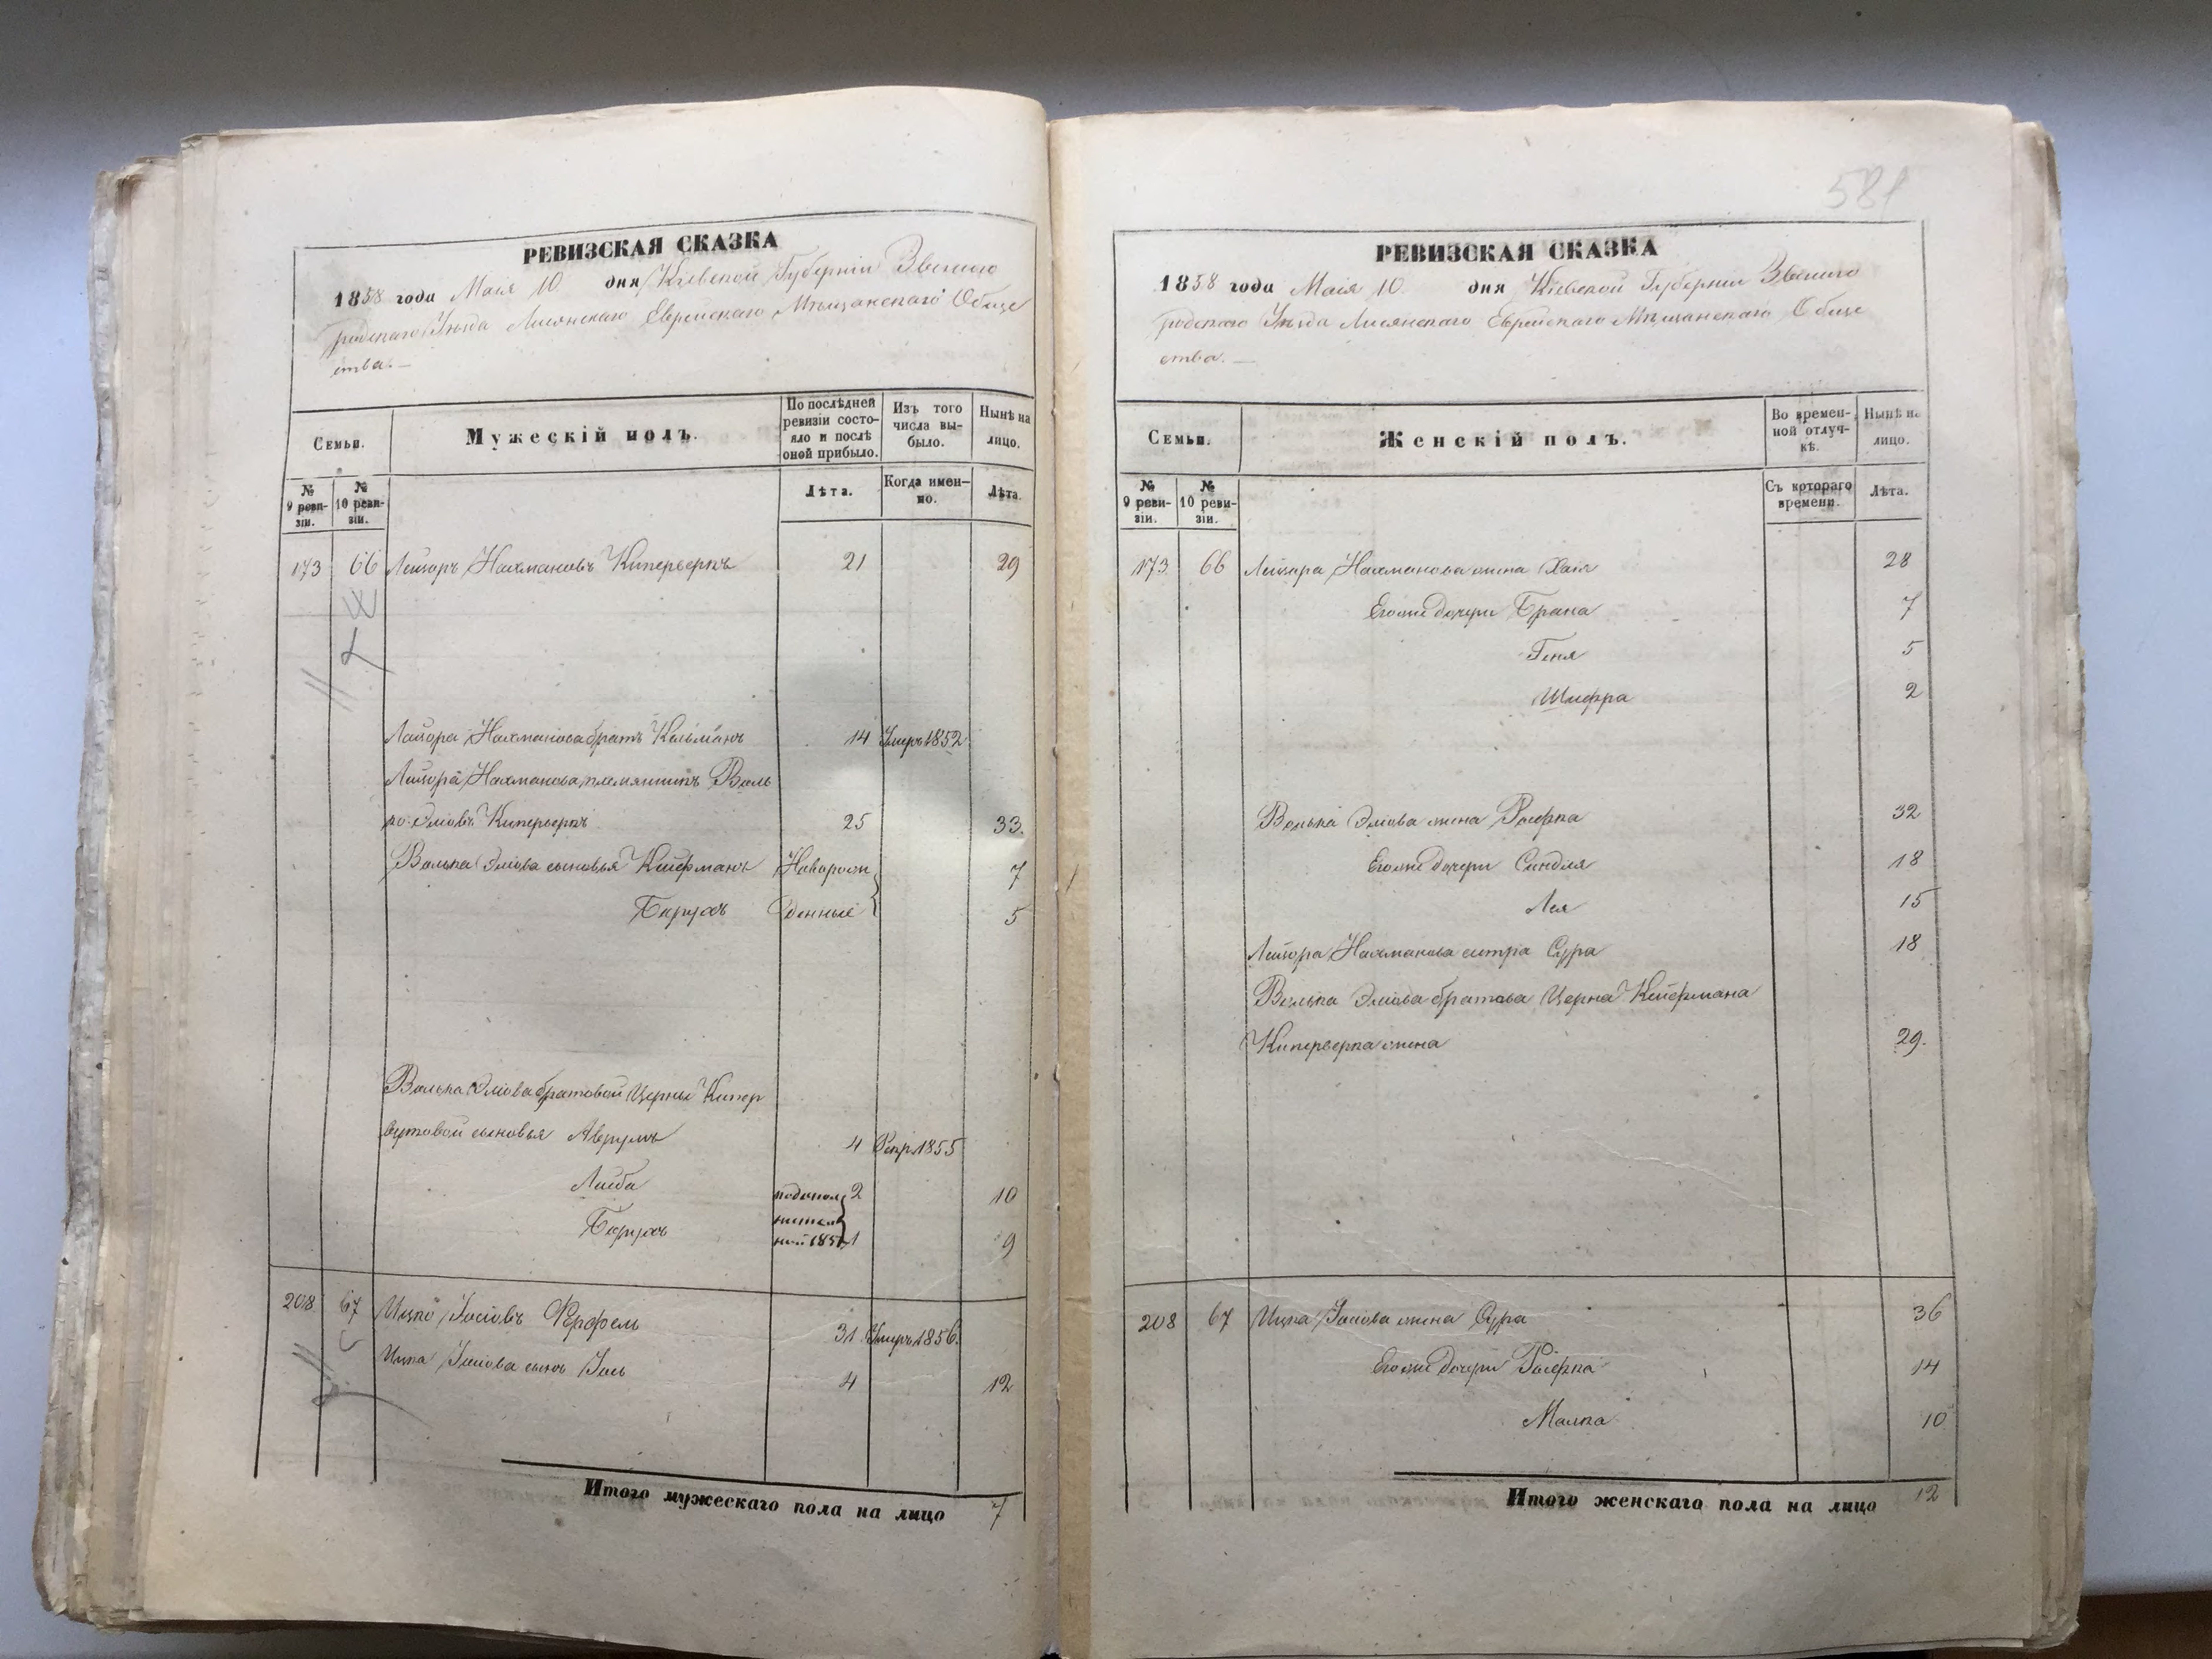 581
РЕВИЗСКАЯ СКАЗКА
1858 года Маія 10 дня Кіевской Губерніи Звениго
родского Уезда Лисянскаго Еврейскаго Мѣщанскаго Обще
ства.—
Семьи.
Мужескій полъ.
По послѣдней ревизіи состояло и послѣ оной прибыло.
Изъ того числа выбыло.
Нынѣ на лицо.
№ 9 ревизіи.
№ 10 ревизіи.
Лѣта.
Когда именно.
Лѣта.
173 66 Лейзоръ Нахмановъ Киперверкъ 21 29
Лейзора Нахманова братъ Кельманъ 14 Умеръ 1852
Лейзора Нахманова племянникъ Воль
ко Эліовъ Киперверкъ 25 33.
Волька Эліова сыновья Кейфманъ Новорож 7
Борухъ денные 5
Волька Эліова братовой Церны Кипер
сыновья Аврумъ 4 1855
Лейба 2 10
Борухъ 1 9
208 67 Ицко Іосіовъ Ферфель 31 Умеръ 1856.
Ицка Іосіова сынъ Іось 4 12
Итого мужескаго пола на лицо 7
РЕВИЗСКАЯ СКАЗКА
1858 года Маія 10 дня Кіевской Губерніи Звениго
родского Уезда Лисянскаго Еврейскаго Мѣщанскаго Обще
ства.—
Семьи.
Женскій полъ.
Во временной отлучкѣ.
Нынѣ на лицо.
№ 9 ревизіи.
№ 10 ревизіи.
Съ котораго времени.
Лѣта.
173 66 Лейзора Нахманова жена Хая 28
Его же дочери Брана 7
Геня 5
Шифра 2
Волька Эліова жена Ройфка 32
Его же дочери Синдля 18
Лея 15
Лейзора Нахманова сестра Сура 18
Волька Эліова братова Церна Кейфмана
Киперверка жена 29.
208 67 Ицка Іосіова жена Сура 36
Его же дочери Ройфка 14
Малка 10
Итого женскаго пола на лицо 12